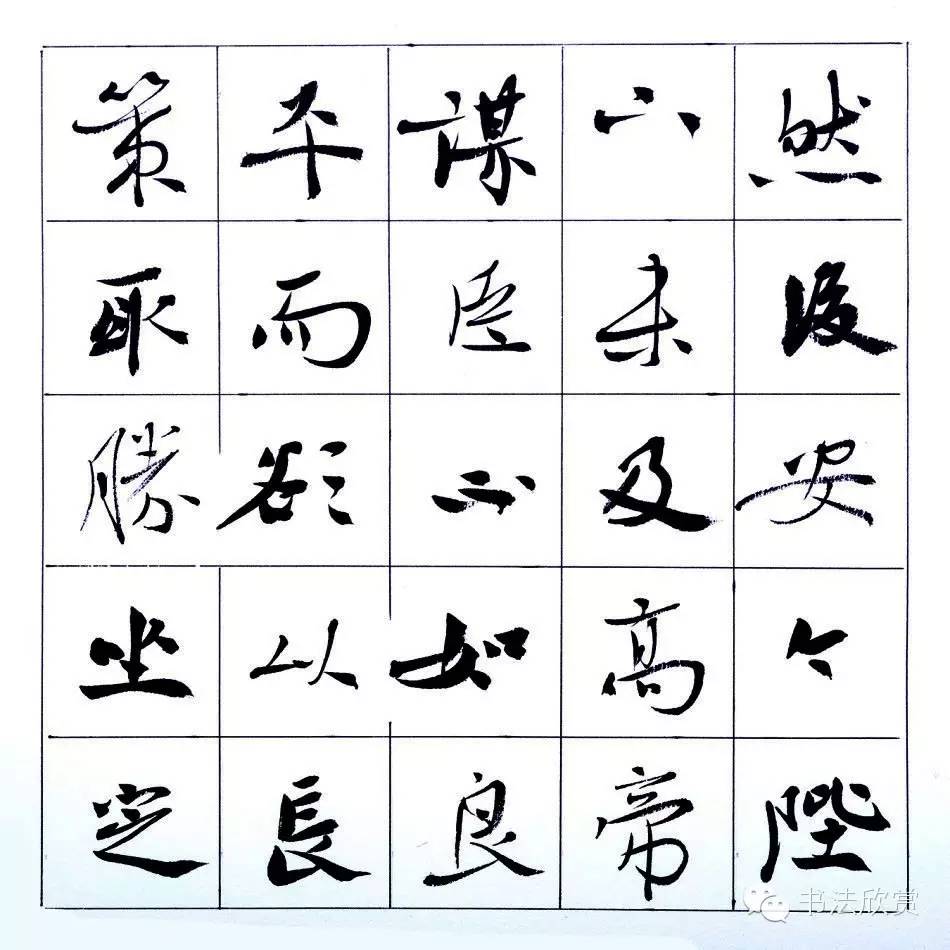 然後安今陛
下未及高帝
謀臣不如良
平而欲以長
策取勝坐定
书法欣赏